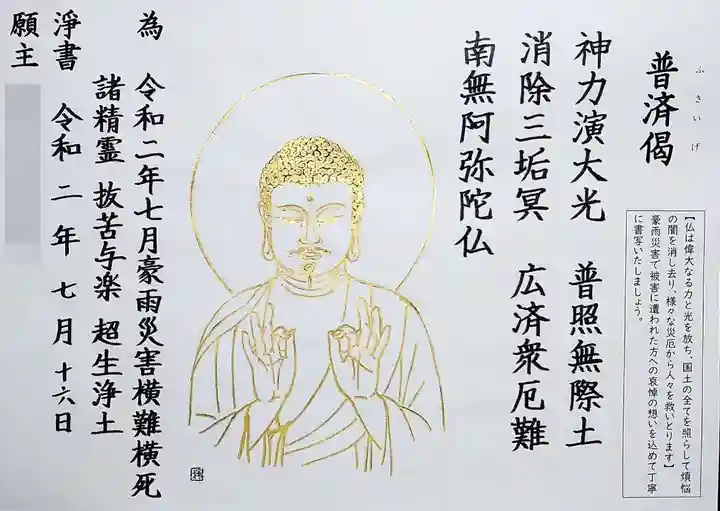 普済偈
ふさいげ
【仏は偉大なる力と光を放ち、国土の全てを照らして煩悩
の闇を消し去り、様々な災厄から人々を救いとります】
豪雨災害で被害に遭われた方への哀悼の想いを込めて丁寧
に書写いたしましょう。
神力演大光 普照無際土
消除三垢冥 広済衆厄難
南無阿弥陀仏
為 令和二年七月豪雨災害横難横死
諸精霊 抜苦与楽 超生浄土
浄書 令和二年七月十六日
願主